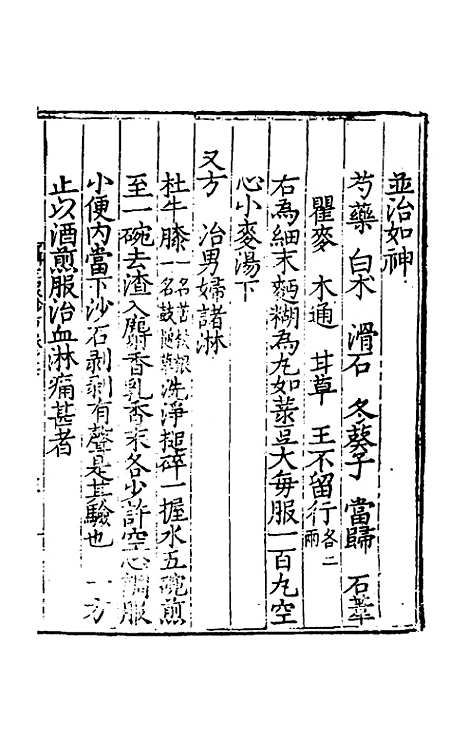 並治如神
芍藥 白朮 滑石 冬葵子 當歸 石葦
瞿麥 木通 甘草 王不留行各二兩
右為細末麪糊為丸如菉豆大每服一百丸空
心小麥湯下
又方 冶男婦諸淋
杜牛膝一名 一名鼓 洗淨搥碎一握水五碗煎
至一碗去渣入麝香乳香末各少許空心調服
小便內當下沙石剥剥有聲是其驗也 一方
止以酒煎服治血淋痛甚者